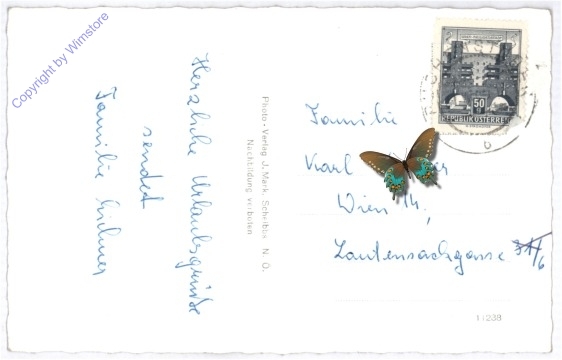 Copyright by Wimstore
Herzliche Urlaubsgrüße
sendet
Familie
Photo-Verlag J. Mark, Scheibbs, N. Ö.
Nachbildung verboten
50
REPUBLIK ÖSTERREICH
Familie
Karl
Wien 14.,
Lautensackgasse
11238